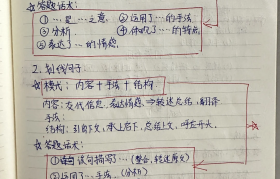 ☆答题话术:
①…是…之意. ②运用了…的手法
③分析. ④体现了…的特点
⑤表达了…的情感.
2. 划线句子:
☆模式: 内容+手法+结构.
内容: 交代信息, 表达情感 ⇒ 转述总结, 翻译
手法:
结构: 引出下文, 承上启下, 总结上文, 呼应开头.
☆答题话术:
①该句描写了…(整合, 转述原文)
②运用了…手法, (分析)